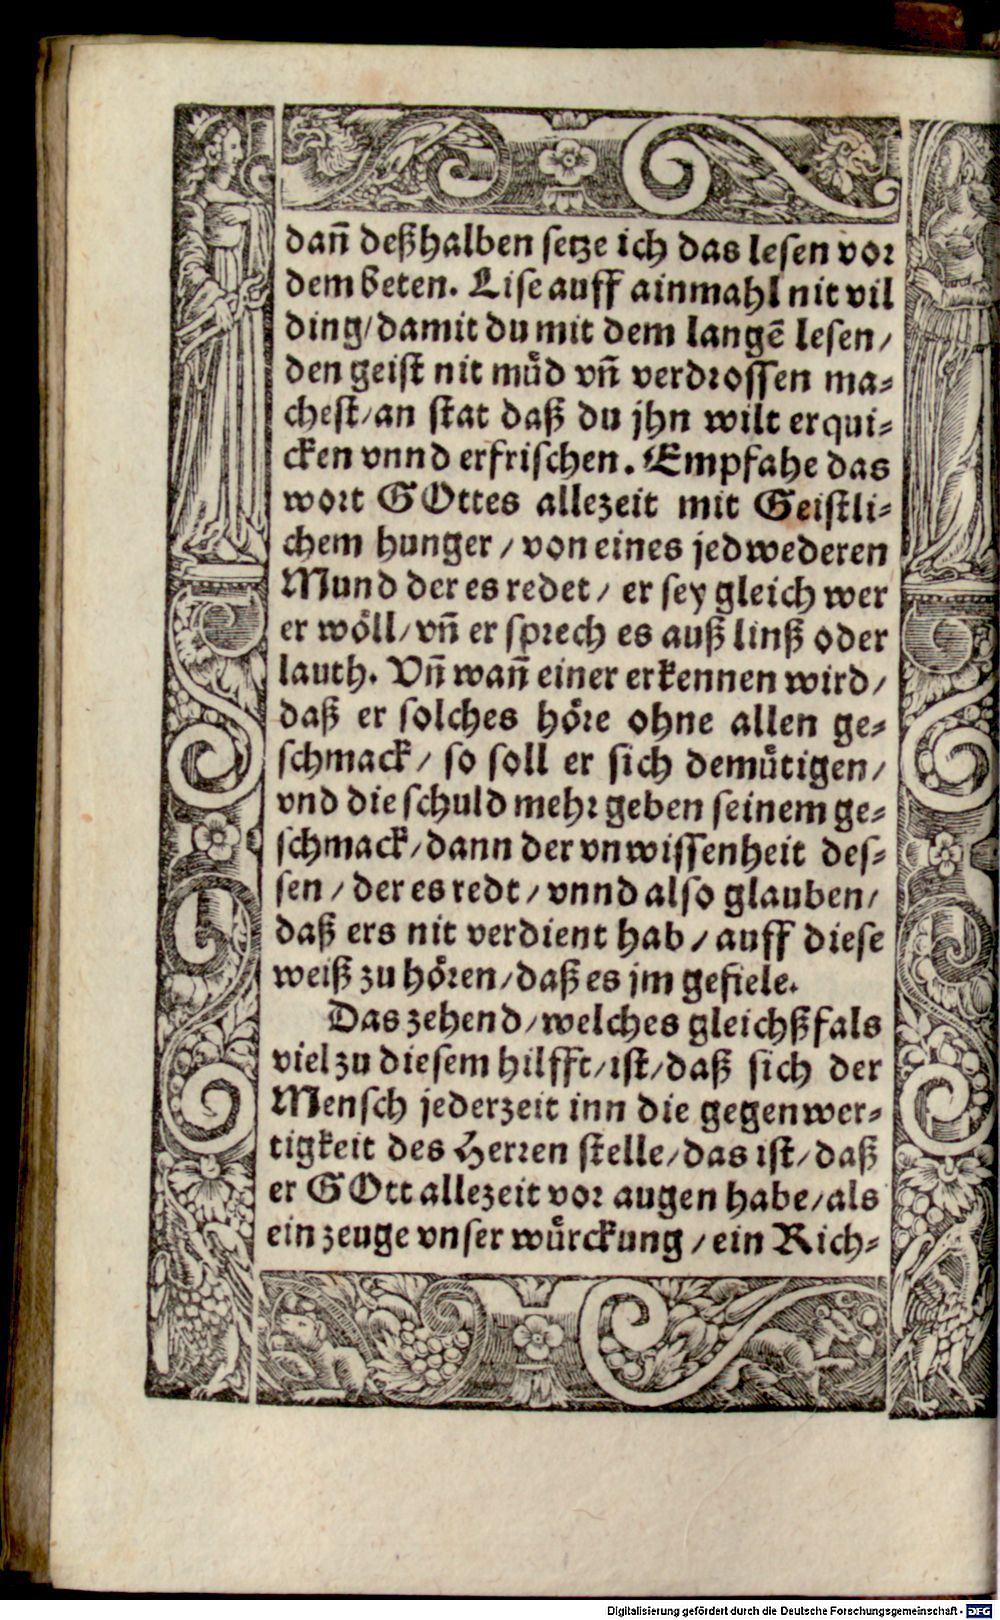 dañ deßhalben setze ich das lesen vor
dem beten. Lise auff ainmahl nit vil
ding/ damit du mit dem langẽ lesen/
den geist nit muͤd vñ verdrossen ma⸗
chest/ an stat daß du jhn wilt erqui⸗
cken vnnd erfrischen. Empfahe das
wort GOttes allezeit mit Geistli⸗
chem hunger/ von eines jedwederen
Mund der es redet/ er sey gleich wer
er woͤll/ vñ er sprech es auß linß oder
lauth. Vñ wañ einer erkennen wird/
daß er solches hoͤre ohne allen ge⸗
schmack/ so soll er sich demuͤtigen/
vnd die schuld mehr geben seinem ge⸗
schmack/ dann der vnwissenheit des⸗
sen/ der es redt/ vnnd also glauben/
daß ers nit verdient hab/ auff diese
weiß zu hoͤren/ daß es jm gefiele.
Das zehend/ welches gleichßfals
viel zu diesem hilfft/ ist/ daß sich der
Mensch jederzeit inn die gegenwer⸗
tigkeit des Herren stelle/ das ist/ daß
er GOtt allezeit vor augen habe/ als
ein zeuge vnser wuͤrckung/ ein Rich⸗
Digitalisierung gefördert durch die Deutsche Forschungsgemeinschaft - DFG